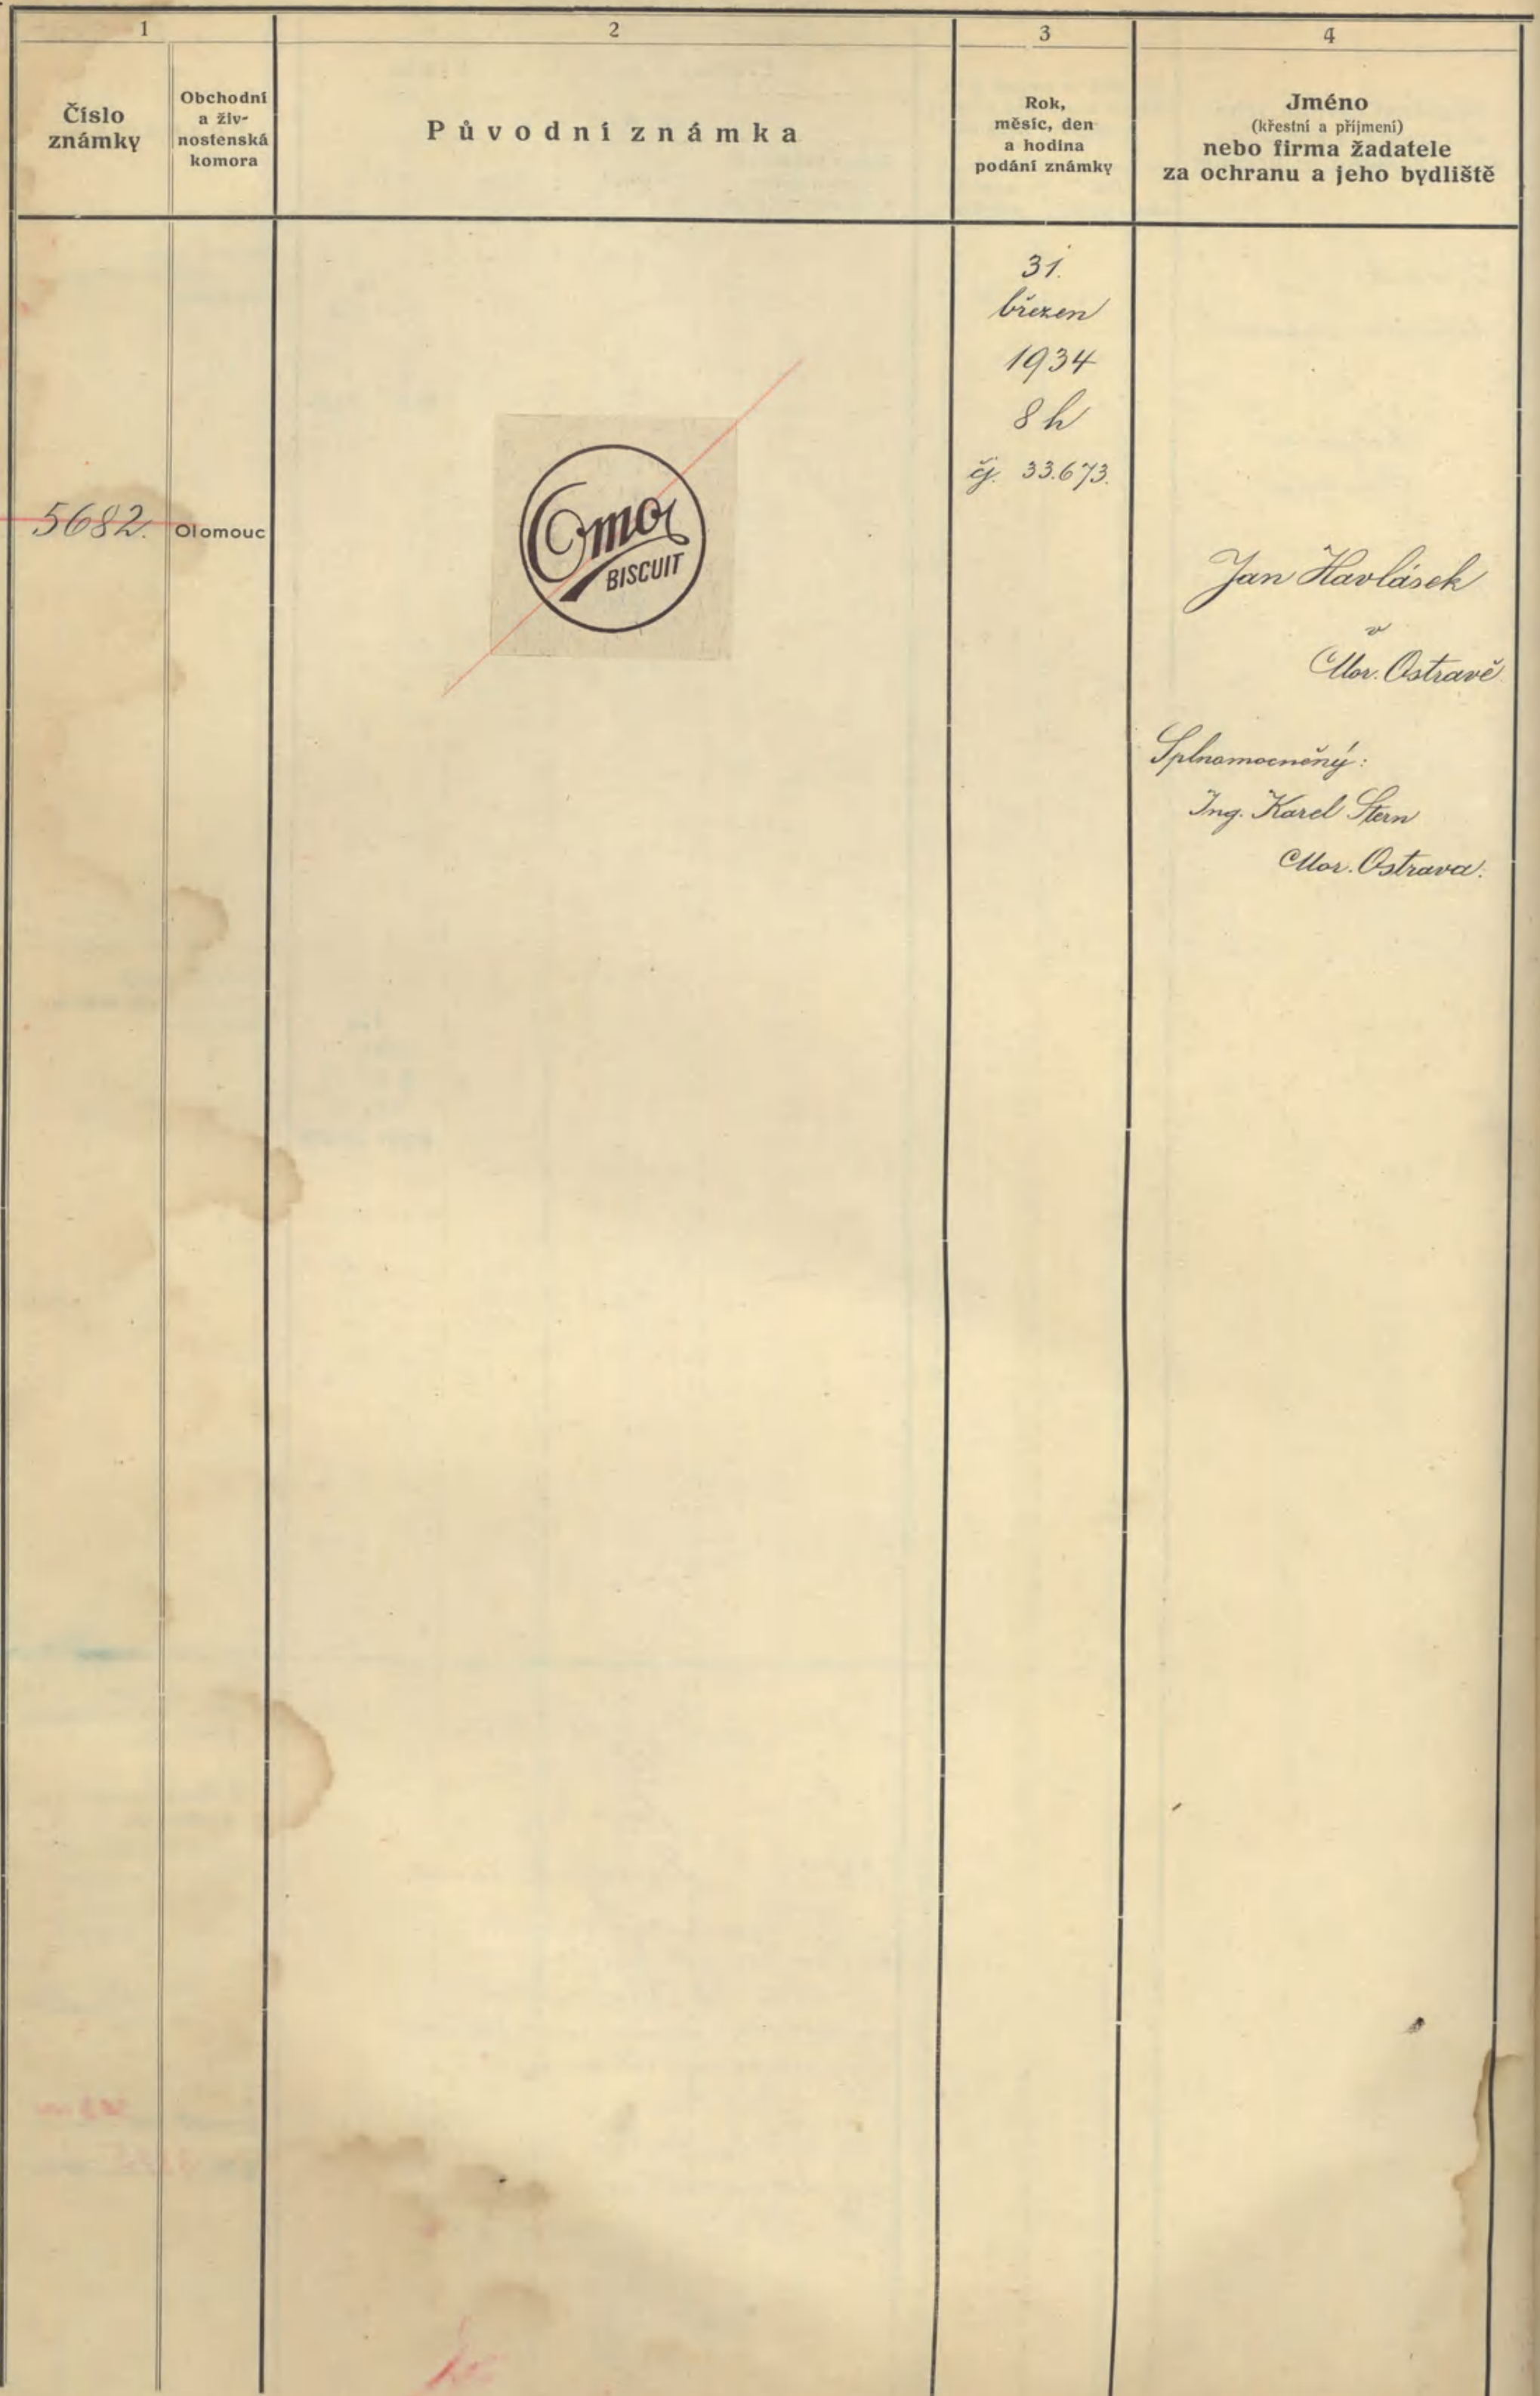 1
2
3
4
Číslo
známky
Obchodní
a živ-
nostenská
komora
Původní známka
Rok,
měsíc, den
a hodina
podání známky
Jméno
(křestní a příjmení)
nebo firma žadatele
za ochranu a jeho bydliště
31.
březen
1934
8 h
čj. 33.673.
5682.
Olomouc
Omor
BISCUIT
Jan Havlásek
v
Mor. Ostravě
Splnomocněný:
Ing. Karel Stern
Mor. Ostrava.